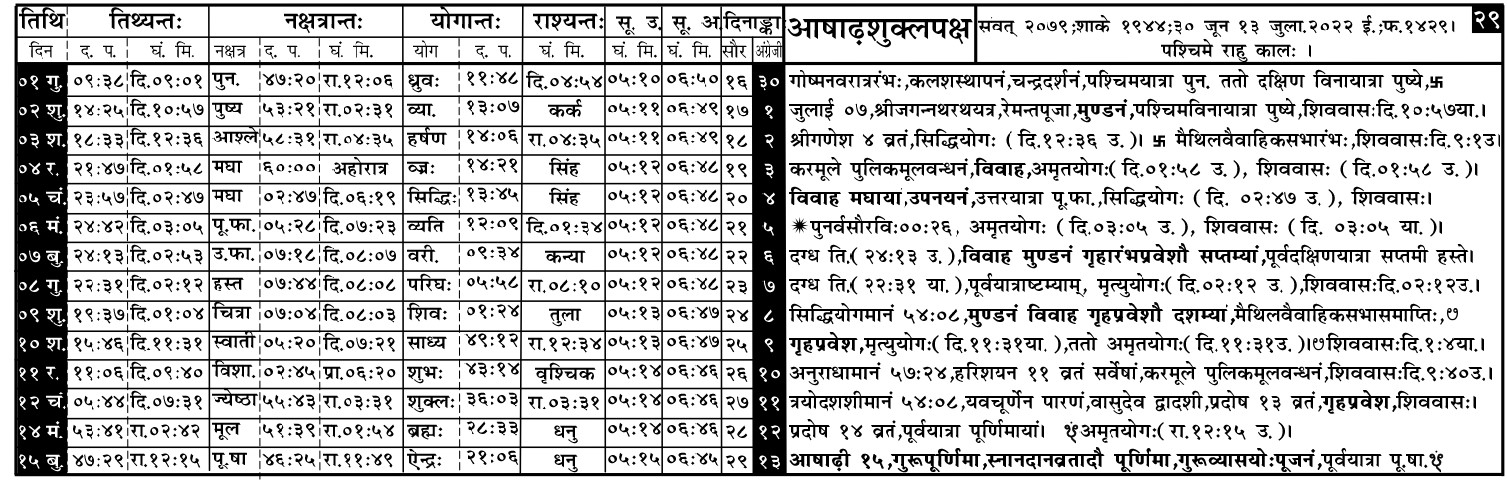 तिथि तिथ्यन्तः नक्षत्रान्तः योगान्तः राश्यन्तः सू. उ. सू. अ. दिनाङ्का आषाढ़शुक्लपक्ष संवत् २०७९;शाके १९४४;३० जून १३ जुला.२०२२ ई.;फ.१४२९। २९
दिन द. प. घं. मि. नक्षत्र द. प. घं. मि. योग द. प. घं. मि. घं. मि. घं. मि. सौर अंग्रेजी पश्चिमे राहु कालः ।
०१ गु. ०९:३८ दि.०९:०१ पुन. ४७:२० रा.१२:०६ ध्रुवः ११:४८ दि.०४:५४ ०५:१० ०६:५० १६ ३० गोष्मनवरात्ररंभः,कलशस्थापनं,चन्द्रदर्शनं,पश्चिमयात्रा पुन. ततो दक्षिण विनायात्रा पुष्ये,卐
०२ शु. १४:२५ दि.१०:५७ पुष्य ५३:२१ रा.०२:३१ व्या. १३:०७ कर्क ०५:११ ०६:४९ १७ १ जुलाई ०७,श्रीजगन्नथरथयत्र,रेमन्तपूजा,मुण्डनं,पश्चिमविनायात्रा पुष्ये,शिववासःदि.१०:५७या.।
०३ श. १८:३३ दि.१२:३६ आश्ले ५८:३१ रा.०४:३५ हर्षण १४:०६ रा.०४:३५ ०५:११ ०६:४९ १८ २ श्रीगणेश ४ व्रतं,सिद्धियोगः ( दि.१२:३६ उ. )। 卐 मैथिलवैवाहिकसभारंभः,शिववासःदि.९:१उ।
०४ र. २१:४७ दि.०१:५८ मघा ६०:०० अहोरात्र व्ज्रः १४:२१ सिंह ०५:१२ ०६:४८ १९ ३ करमूले पुलिकमूलवन्धनं,विवाह,अमृतयोग:( दि.०१:५८ उ. ), शिववासः ( दि.०१:५८ उ. )।
०५ चं. २३:५७ दि.०२:४७ मघा ०२:४७ दि.०६:१९ सिद्धिः १३:४५ सिंह ०५:१२ ०६:४८ २० ४ विवाह मघायां,उपनयनं,उत्तरयात्रा पू.फा.,सिद्धियोगः ( दि. ०२:४७ उ. ), शिववासः।
०६ मं. २४:४२ दि.०३:०५ पू.फा. ०५:२८ दि.०७:२३ व्यति १२:०९ दि.०१:३४ ०५:१२ ०६:४८ २१ ५ ✷पुनर्वसौरविः००:२६, अमृतयोगः ( दि.०३:०५ उ. ), शिववासः ( दि. ०३:०५ या. )।
०७ बु. २४:१३ दि.०२:५३ उ.फा. ०७:१८ दि.०८:०७ वरी. ०९:३४ कन्या ०५:१२ ०६:४८ २२ ६ दग्ध ति.( २४:१३ उ. ),विवाह मुण्डनं गृहारंभप्रवेशौ सप्तम्यां,पूर्वदक्षिणयात्रा सप्तमी हस्ते।
०८ गु. २२:३१ दि.०२:१२ हस्त ०७:४४ दि.०८:०८ परिघः ०५:५८ रा.०८:१० ०५:१२ ०६:४८ २३ ७ दग्ध ति.( २२:३१ या. ),पूर्वयात्राष्टम्याम्, मृत्युयोग:( दि.०२:१२ उ. ),शिववास:दि.०२:१२उ.।
०९ शु. १९:३७ दि.०१:०४ चित्रा ०७:०४ दि.०८:०३ शिवः ०१:२४ तुला ०५:१३ ०६:४७ २४ ८ सिद्धियोगमानं ५४:०८,मुण्डनं विवाह गृहप्रवेशौ दशम्यां,मैथिलवैवाहिकसभासमाप्तिः,७
१० श. १५:४६ दि.११:३१ स्वाती ०५:२० दि.०७:२१ साध्य ४९:१२ रा.१२:३४ ०५:१३ ०६:४७ २५ ९ गृहप्रवेश,मृत्युयोग:( दि.११:३१या. ),ततो अमृतयोग:( दि.११:३१उ. )।७शिववास:दि.१:४या.।
११ र. ११:०६ दि.०९:४० विशा. ०२:४५ प्रा.०६:२० शुभः ४३:१४ वृश्चिक ०५:१४ ०६:४६ २६ १० अनुराधामानं ५७:२४,हरिशयन ११ व्रतं सर्वेषां,करमूले पुलिकमूलवन्धनं,शिववास:दि.९:४०उ.।
१२ चं. ०५:४४ दि.०७:३१ ज्येष्ठा ५५:४३ रा.०३:३१ शुक्लः ३६:०३ रा.०३:३१ ०५:१४ ०६:४६ २७ ११ त्रयोदशशीमानं ५४:०८,यवचूर्णेन पारणं,वासुदेव द्वादशी,प्रदोष १३ व्रतं,गृहप्रवेश,शिववासः।
१४ मं. ५३:४१ रा.०२:४२ मूल ५१:३९ रा.०१:५४ ब्रह्मः २८:३३ धनु ०५:१४ ०६:४६ २८ १२ प्रदोष १४ व्रतं,पूर्वयात्रा पूर्णिमायां। अमृतयोग:( रा.१२:१५ उ. )।
१५ बु. ४७:२९ रा.१२:१५ पू.षा ४६:२५ रा.११:४९ ऐन्द्रः २१:०६ धनु ०५:१५ ०६:४५ २९ १३ आषाढ़ी १५,गुरूपूर्णिमा,स्नानदानव्रतादौ पूर्णिमा,गुरूव्यासयोःपूजनं,पूर्वयात्रा पू.षा.